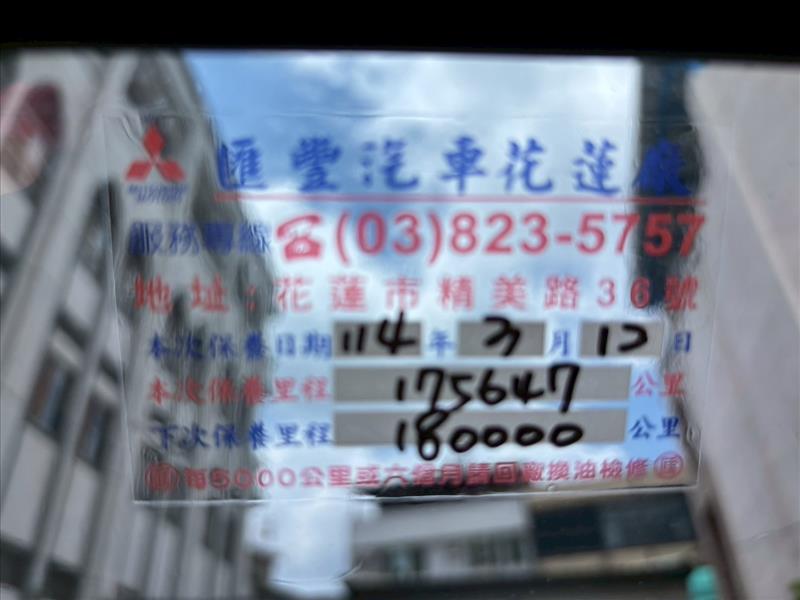 匯豐汽車花蓮廠
MITSUBISHI MOTORS
服務專線☎(03)823-5757
地址:花蓮市精美路36號
本次保養日期114年3月12日
本次保養里程175647公里
下次保養里程180000公里
每5000公里或六個月請回廠換油檢修